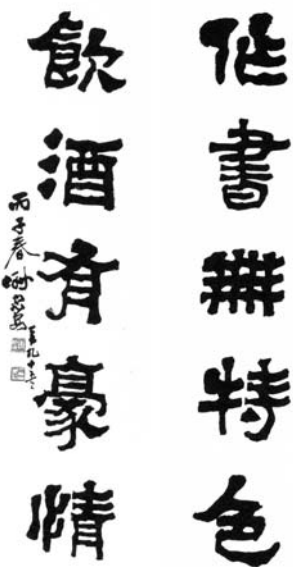 作書無特色
飲酒有豪情
丙子春
年九十